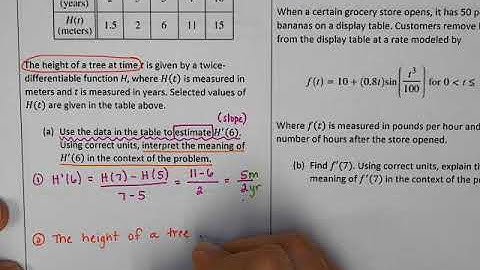 (years)
H(t)
(meters) 1.5 2 6 11 15
The height of a tree at time t is given by a twice-
differentiable function H, where H(t) is measured in
meters and t is measured in years. Selected values of
H(t) are given in the table above.
(slope)
(a) Use the data in the table to estimate H'(6).
Using correct units, interpret the meaning of
H'(6) in the context of the problem.
① H'(6) = H(7) - H(5) / 7-5 = 11-6 / 2 = 5m / 2yr
② The height of a tree
When a certain grocery store opens, it has 50 p
bananas on a display table. Customers remove
from the display table at a rate modeled by
f(t) = 10 + (0.8t)sin(t³/100) for 0 < t ≤
Where f(t) is measured in pounds per hour and
number of hours after the store opened.
(b) Find f'(7). Using correct units, explain t
meaning of f'(7) in the context of the p